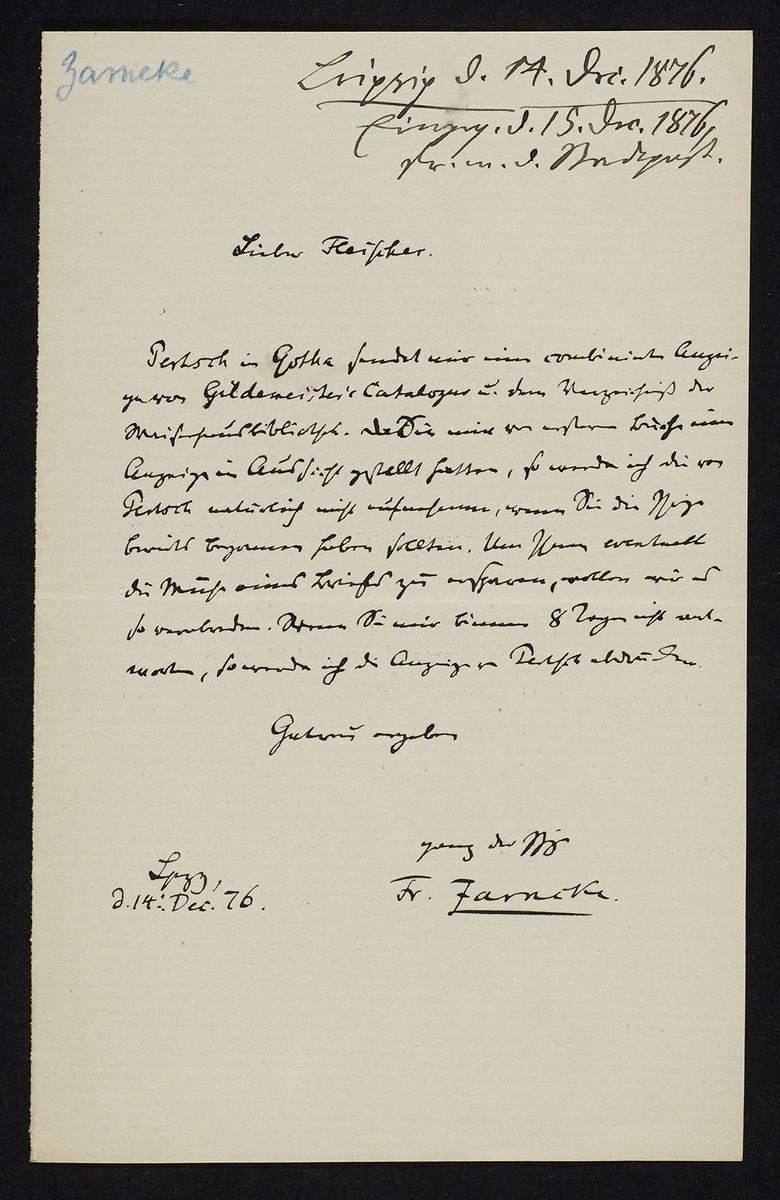 Zarncke
Leipzig d. 14. Dec. 1876.
Eingeg. d. 15. Dec. 1876,
fr. m. d. Stadtpost.
Lieber Fleischer.
Pertsch in Gotha sendet mir eine combinirte Anzei-
ge von Gildemeister's Catalogus u. dem Verzeichniß der
bibliothek. Da Sie mir von ersterem Buche eine
Anzeige in Aussicht gestellt hatten, so werde ich die von
Pertsch natürlich nicht aufnehmen, wenn Sie die Ihrige
bereits begonnen haben sollten. Um Ihnen eventuell
die Mühe eines Briefes zu ersparen, wollen wir es
so verabreden. Wenn Sie mir binnen 8 Tagen nicht ant-
worten, so werde ich die Anzeige v. Pertsch abdrucken.
Getreu ergeben
ganz der Ihrige
Lpzg,
d. 14. Dec. 76.
Fr. Zarncke.